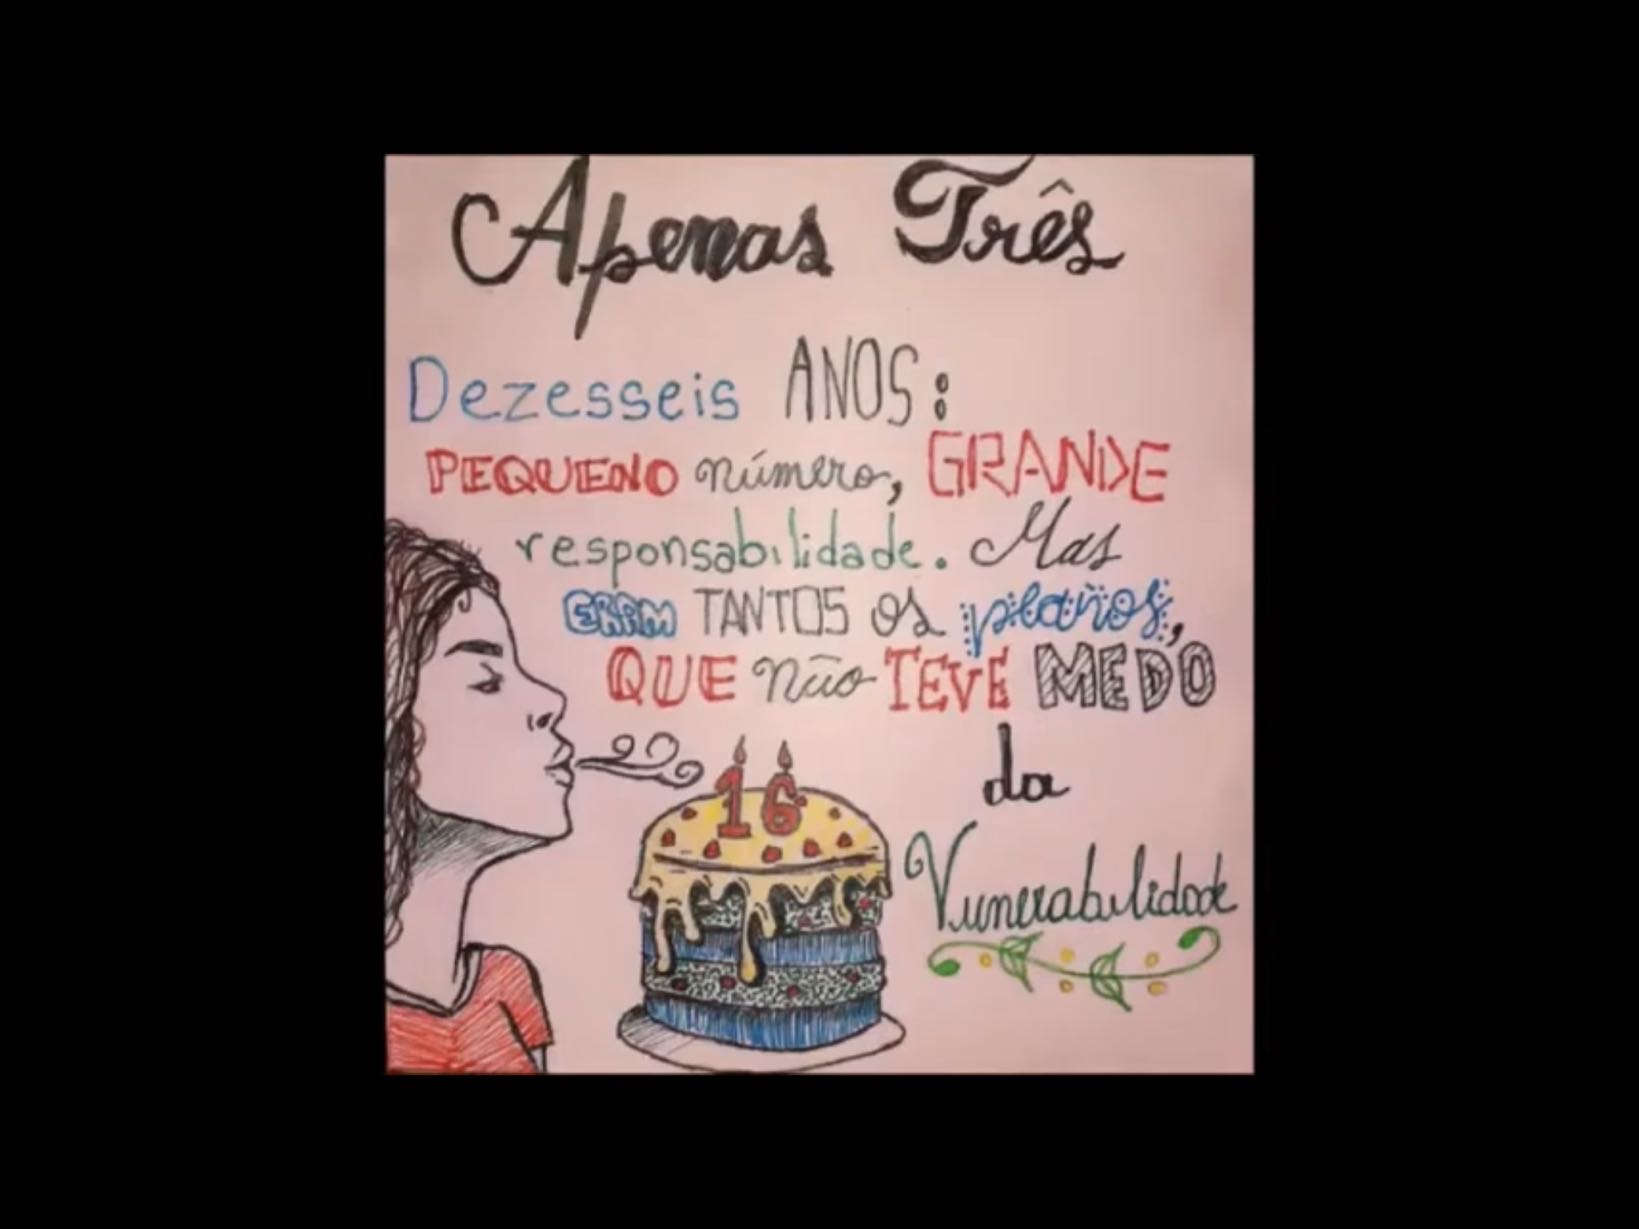 Apenas Três
Dezesseis ANOS:
PEQUENO número, GRANDE
responsabilidade. Mas
ERAM TANTOS os planos,
QUE não TEVE MEDO
da
Vunerabilidade
16